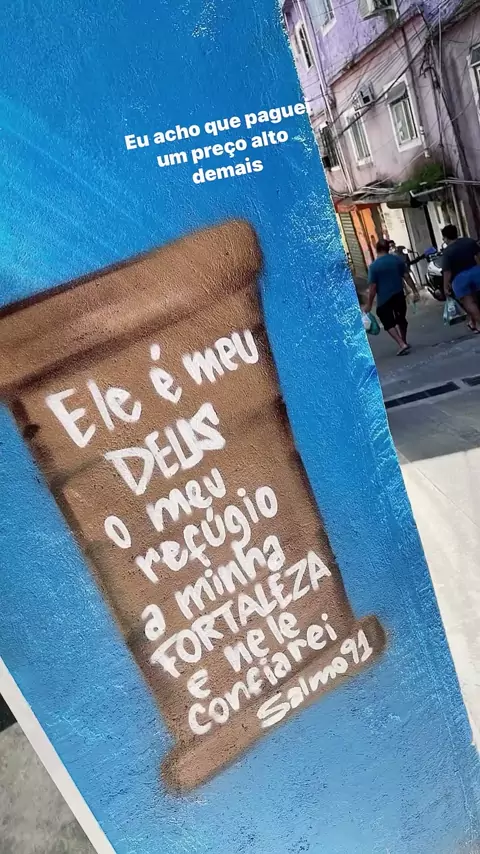 Eu acho que paguei
um preço alto
demais
Ele é meu
DEUS
o meu
refúgio
a minha
FORTALEZA
e nele
confiarei
Salmo 91